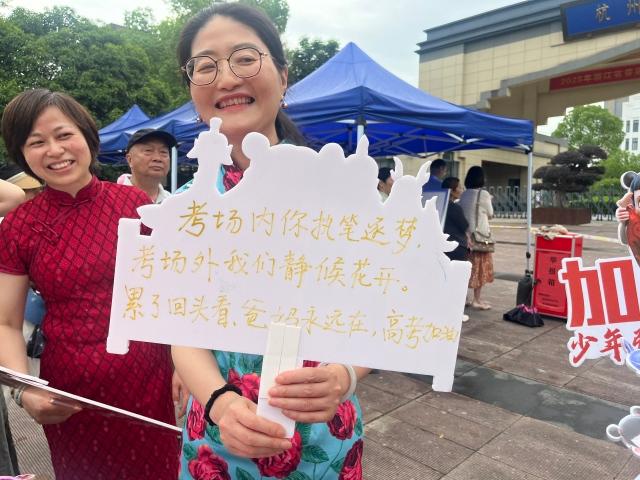 杭州
2025年浙江省普
考场内你执笔逐梦,
考场外我们静候花开。
累了回头看、爸妈永远在,高考加油
举报箱
加
少年